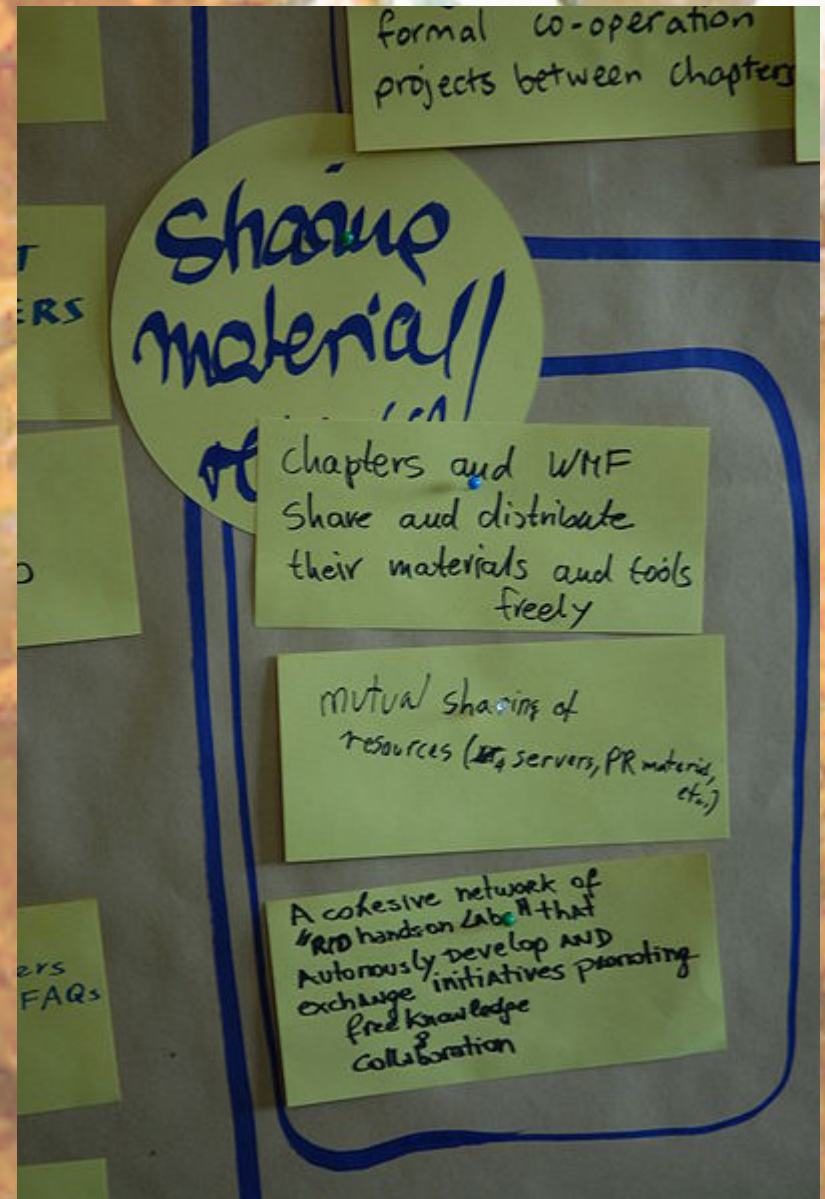 formal co-operation
projects between chapters
Sharing
material/
T
ERS
Chapters and WMF
Share and distribute
their materials and tools
freely
mutual sharing of
resources ( servers, PR material,
etc.)
A cohesive network of
"R/D hands on Labs" that
Autonously Develop AND
exchange initiatives promoting
free knowledge
&
collaboration
ers
FAQs